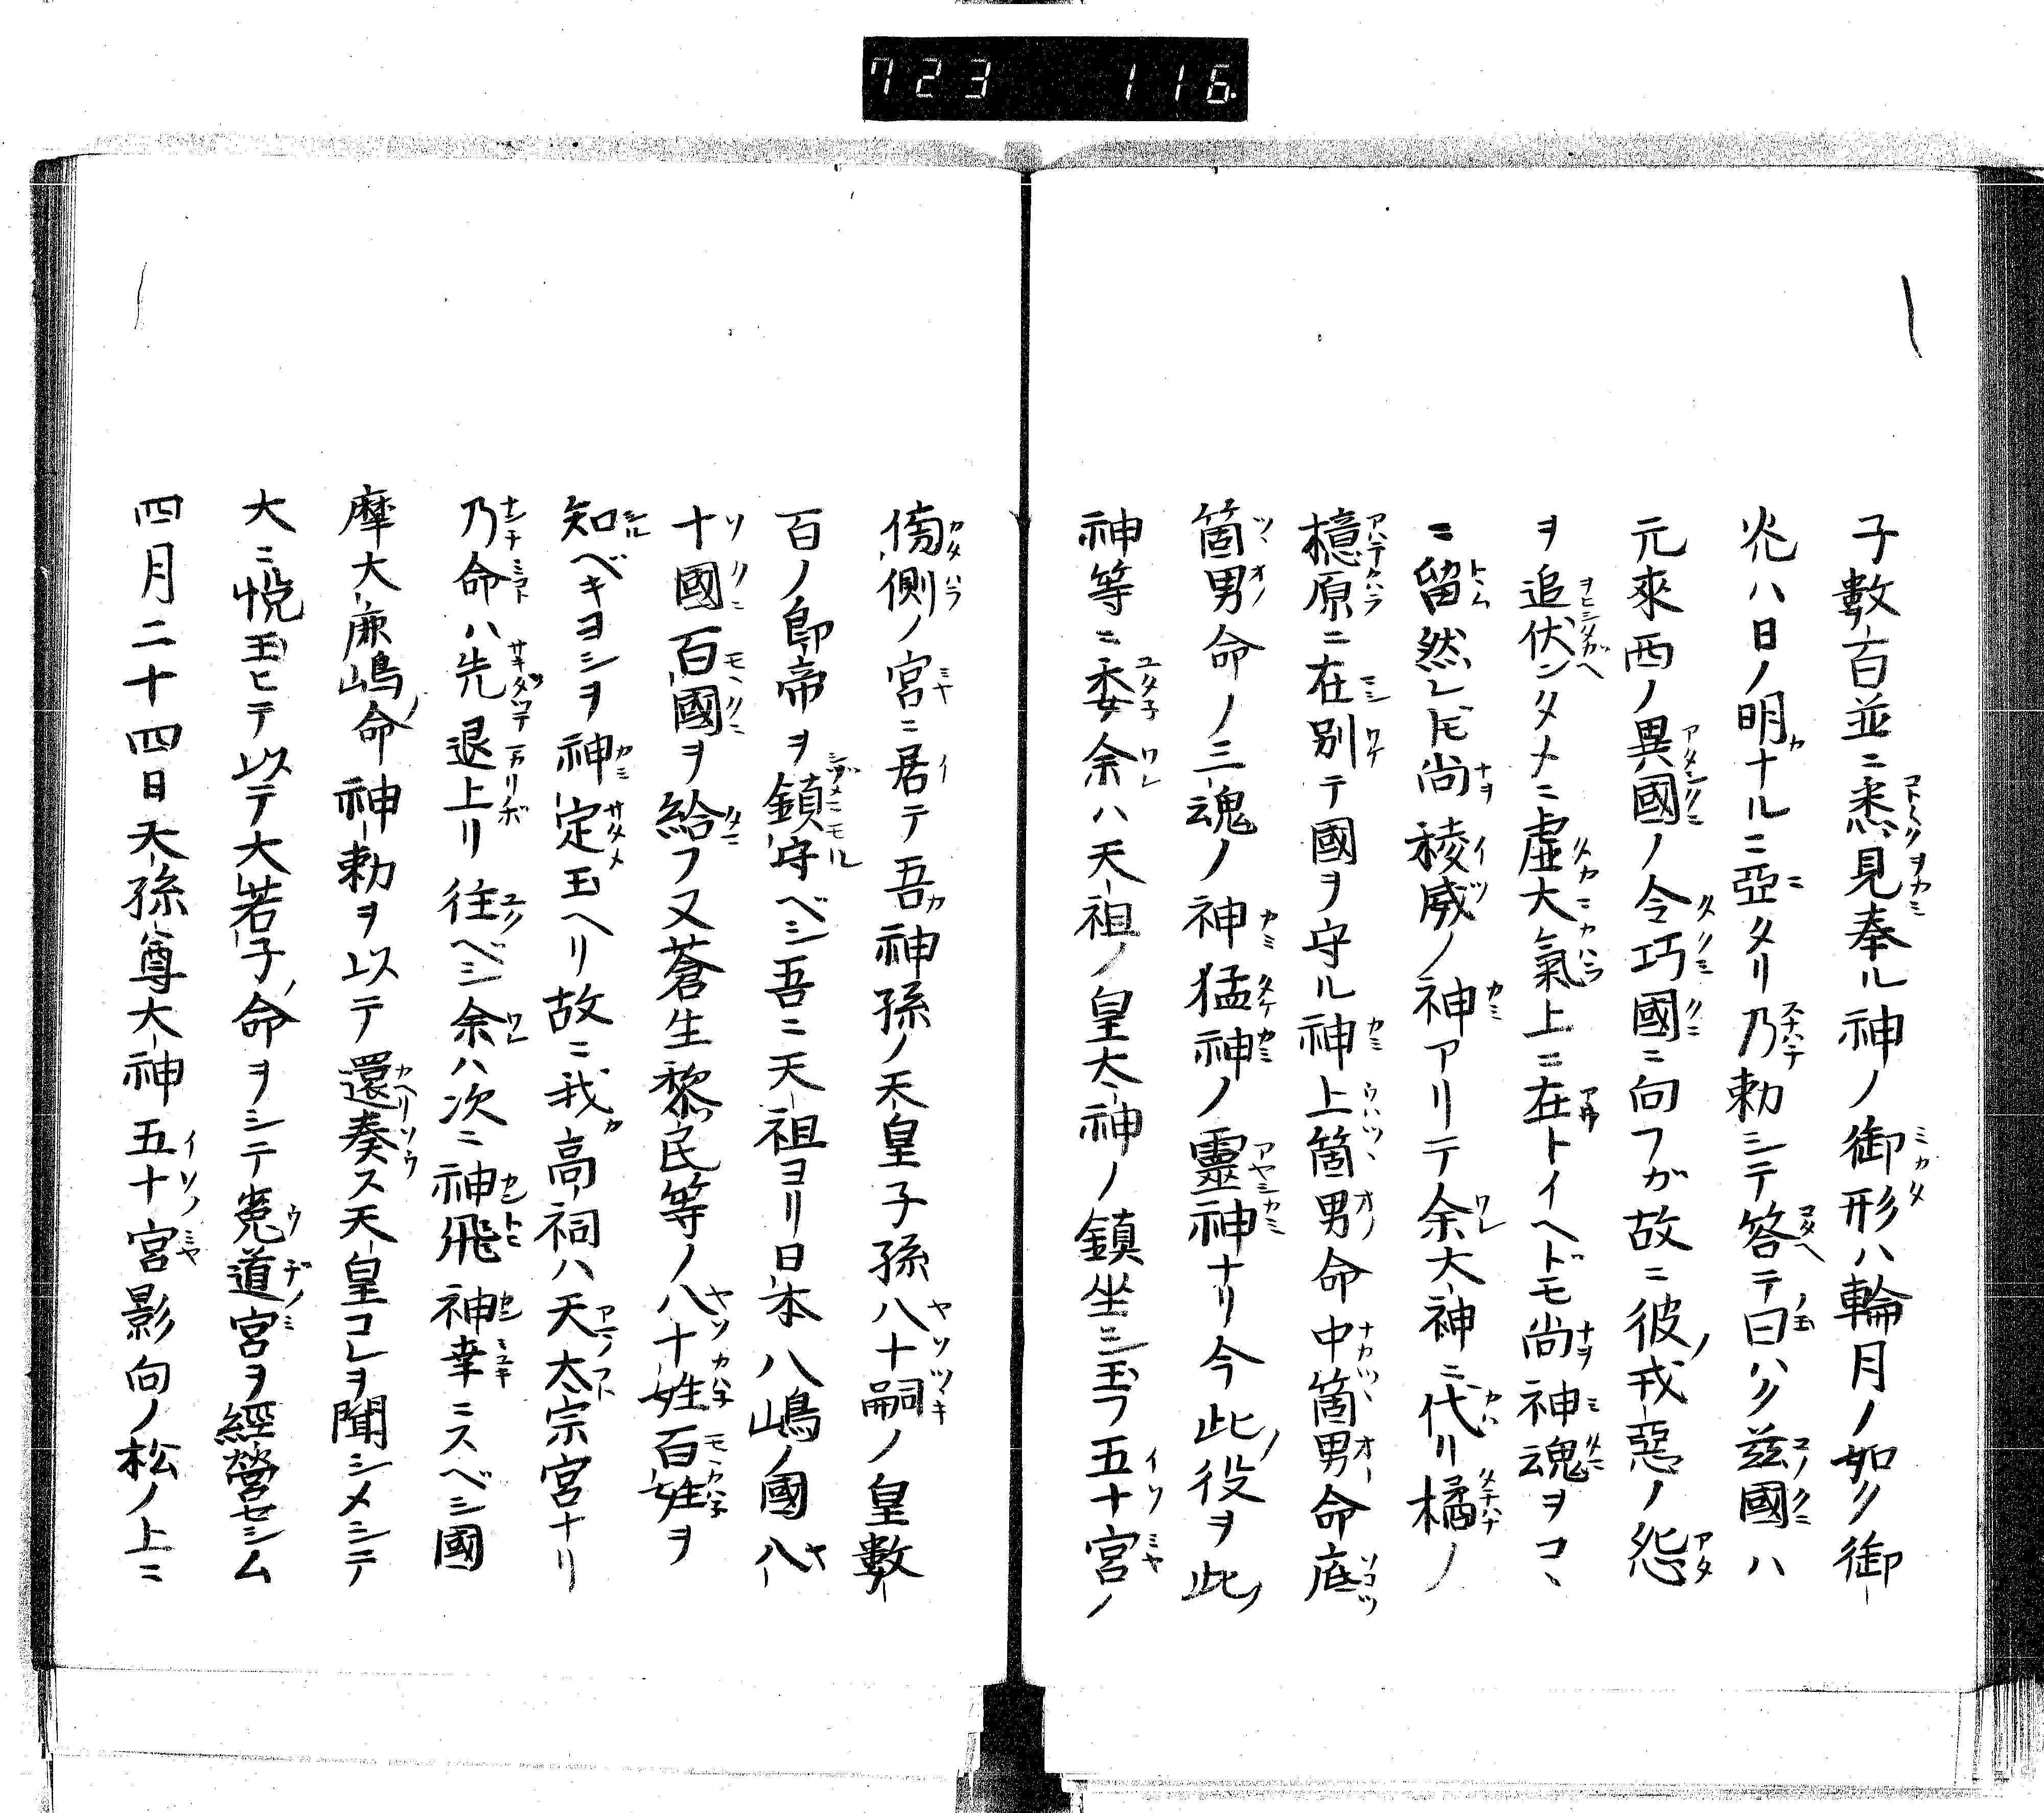 723 116
子數百並ニ悉見奉ル神ノ御形ハ輪月ノ如ク御
光ハ日ノ明ナルニ亞タリ乃勅シテ答テ曰ハク茲國ハ
元來西ノ異國ノ令巧國ニ向フガ故ニ彼ノ戎惡ノ怨
ヲ追伏ンタメニ虚大氣上ニ在トイヘドモ尚神魂ヲコヽ
ニ留然レ𪜈尚稜威ノ神アリテ余大神ニ代リ橘ノ
檍原ニ在別テ國ヲ守ル神上箇男命中箇男命底
箇男命ノ三魂ノ神猛神ノ靈神ナリ今此ノ役ヲ此ノ
神等ニ委余ハ天祖ノ皇大神ノ鎮坐シ玉フ五十宮ノ
傍側ノ宮ニ居テ吾神孫ノ天皇子孫八十嗣ノ皇數
百ノ郎帝ヲ鎮守ベシ吾ニ天祖ヨリ日本八嶋ノ國八
十國百國ヲ給フ又蒼生黎民等ノ八十姓百姓ヲ
知ベキヨシヲ神定玉ヘリ故ニ我高祠ハ天太宗宮ナリ
乃命ハ先退上リ往ベシ余ハ次ニ神飛神幸ニスベシ國
摩大鹿嶋命神勅ヲ以テ還奏ス天皇コレヲ聞シメシテ
大ニ悦玉ヒテ以テ大若子命ヲシテ菟道宮ヲ經營セシム
四月二十四日天孫尊大神五十宮影向ノ松ノ上ニ